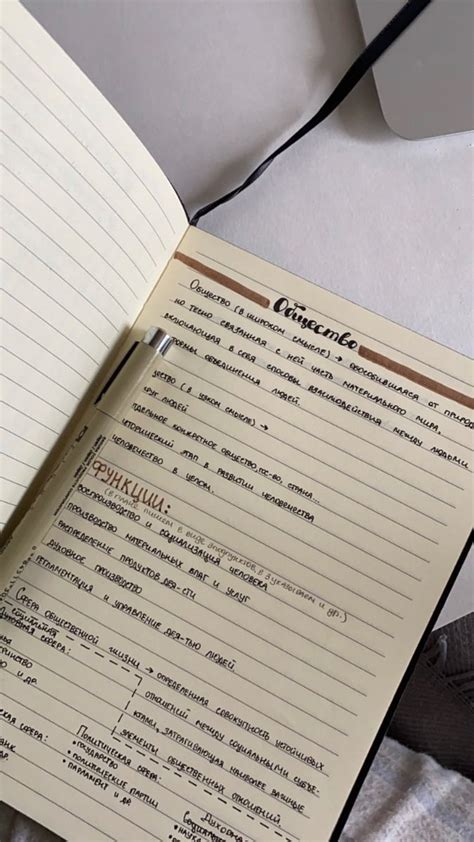 Общество
Общество (в широком смысле) → обособившаяся от природы
но тесно связанная с ней часть материального мира,
включающая в себя способы взаимодействия между людьми
формы объединения людей.
(в узком смысле) →
людей
отдельное конкретное общество, гос-во, страна...
исторический этап в развитии человечества
человечество в целом.
ФУНКЦИИ:
(в плане пишем в виде подпунктов, в 3 указываем и др.)
воспроизводство и социализация человека
производство материальных благ и услуг
распределение продуктов дея-сти
духовное производство
регламентация и управление дея-тью людей
Сфера общественной жизни → определенная совокупность устойчивых
отношений между социальными субъе-
ктами, затрагивающая наиболее важные
элементы общественных отношений
сфера:
и др.
сфера:
Политическая сфера:
• государство
• политические партии
• парламент и др.
• наука